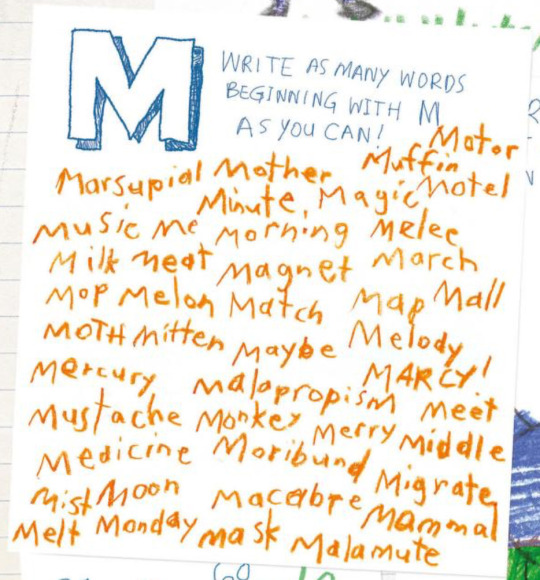 M
WRITE AS MANY WORDS
BEGINNING WITH M
AS YOU CAN!
Motor
Marsupial Mother Muffin
Minute, Magic Motel
Music Me Morning Melee
Milk Meat Magnet March
Mop Melon Match Map Mall
MOTH Mitten Maybe Melody
Mercury Malapropism MARCY!
Mustache Monkey Merry Meet
Medicine Moribund Middle
Mist Moon Macabre Migrate
Melt Monday Mask Malamute Mammal